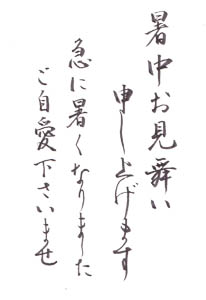 暑中お見舞い
申し上げます
急に暑くなりました
ご自愛下さいませ